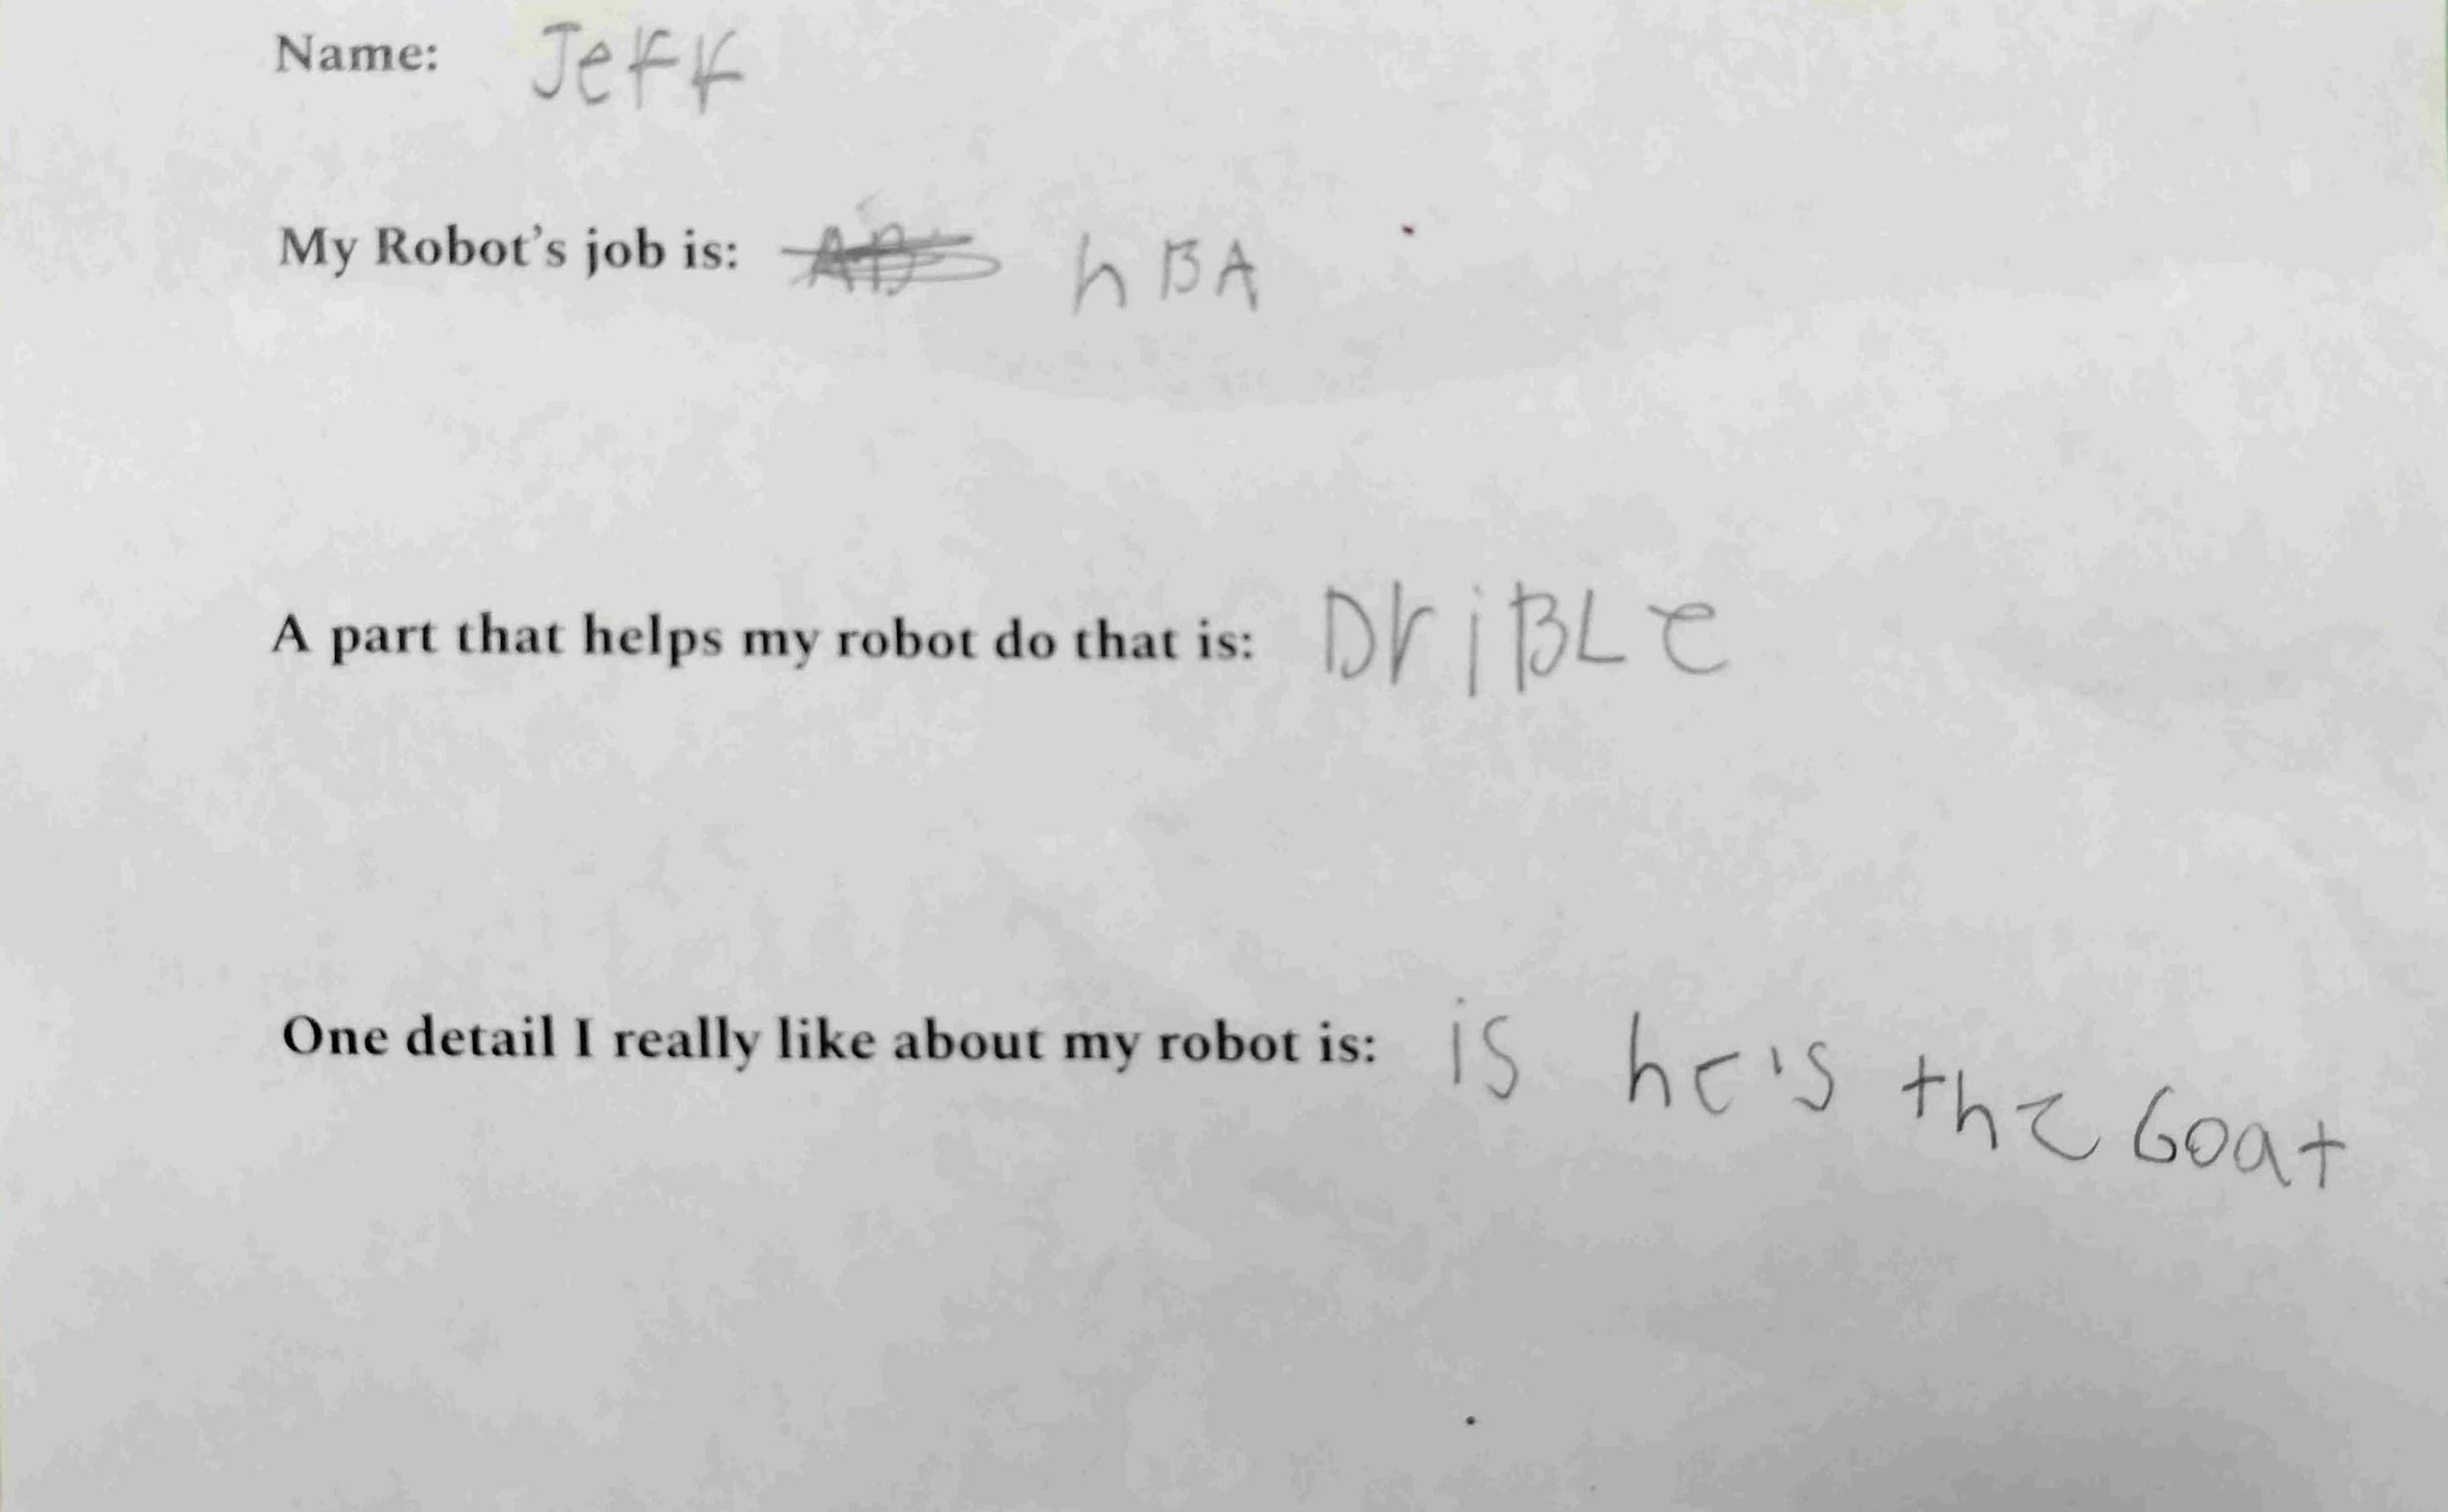 Name: Jeff
My Robot's job is: nBA
A part that helps my robot do that is: DriBLe
One detail I really like about my robot is: is he's the Goat